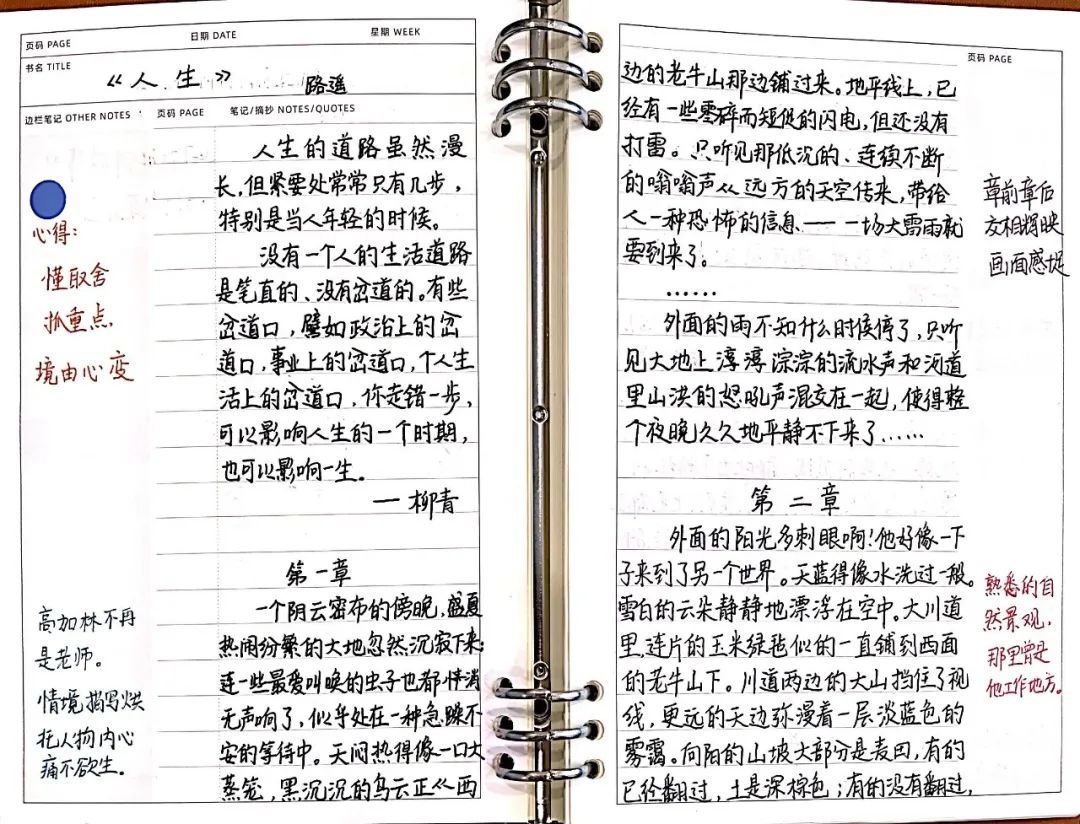 页码 PAGE
日期 DATE
星期 WEEK
书名 TITLE
《人生》 路遥
边栏笔记 OTHER NOTES
页码 PAGE
笔记/摘抄 NOTES/QUOTES
人生的道路虽然漫
长,但紧要处常常只有几步,
特别是当人年轻的时候。
没有一个人的生活道路
是笔直的、没有岔道的。有些
岔道口,譬如政治上的岔
道口,事业上的岔道口,个人生
活上的岔道口,你走错一步,
可以影响人生的一个时期,
也可以影响一生。
——柳青
第一章
一个阴云密布的傍晚,盛夏
热闹纷繁的大地忽然沉寂下来;
连一些最爱叫唤的虫子也都悄消
无声响了,似乎处在一种急躁不
安的等待中。天闷热得像一口大
蒸笼,黑沉沉的乌云正从西
心得:
懂取舍
抓重点
境由心变
高加林不再
是老师。
情境描写烘
托人物内心
痛不欲生。
页码 PAGE
边的老牛山那边铺过来。地平线上,已
经有一些零碎而短促的闪电,但还没有
打雷。只听见那低沉的、连续不断
的嗡嗡声从远方的天空传来,带给
人一种恐怖的信息——一场大雷雨就
要到来了。
……
外面的雨不知什么时候停了,只听
见大地上淳淳淙淙的流水声和河道
里山洪的怒吼声混交在一起,使得整
个夜晚久久地平静不下来了……
第二章
外面的阳光多刺眼啊!他好像一下
子来到了另一个世界。天蓝得像水洗过一般。
雪白的云朵静静地漂浮在空中。大川道
里,连片的玉米绿毡似的一直铺到西面
的老牛山下。川道两边的大山挡住了视
线,更远的天边弥漫着一层淡蓝色的
雾霭。向阳的山坡大部分是麦田,有的
已经翻过,土是深棕色;有的没有翻过,
章前章后
交相辉映
画面感足
熟悉的自
然景观,
那里曾是
他工作地方。